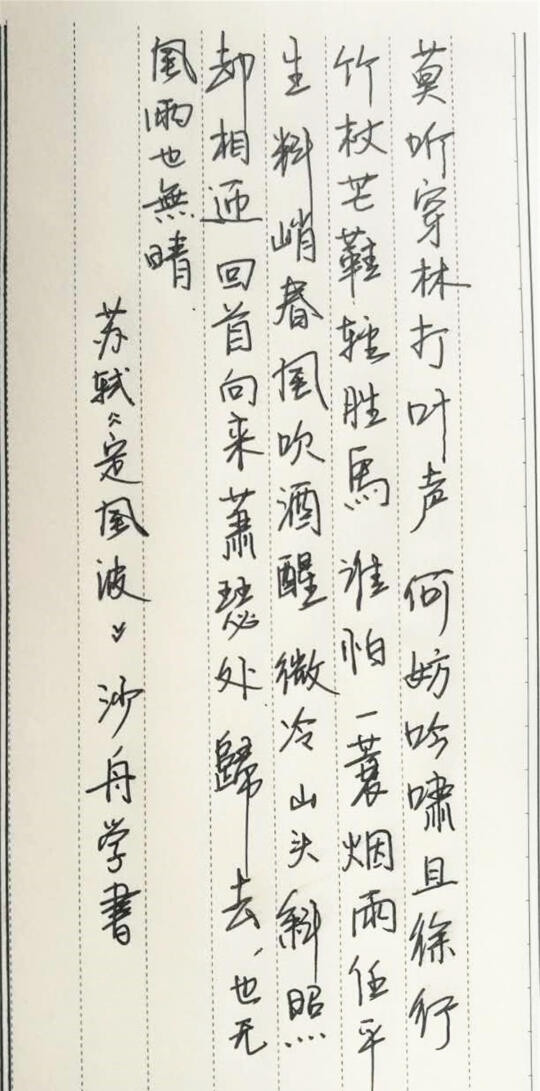 莫听穿林打叶声何妨吟啸且徐行
竹杖芒鞋轻胜馬谁怕一蓑烟雨任平
生料峭春風吹酒醒微冷山头斜照
却相迎回首向来萧瑟处歸去,也无
風雨也無晴
苏轼《定風波》沙舟学書